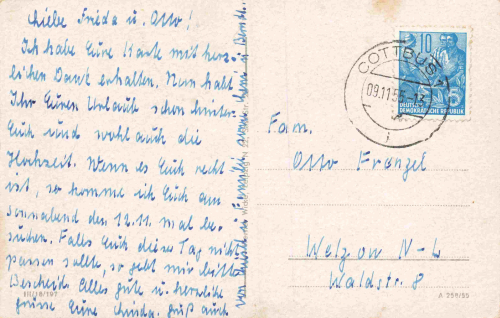 Liebe Frieda u. Otto!
Ich habe Eure Karte mit herz-
lichen Dank erhalten. Nun habt
Ihr Euren Urlaub schon hinter
Euch und wohl auch die
Hochzeit. Wenn es Euch recht
ist, so komme ich Euch am
Sonnabend den 12.11. mal be-
suchen. Falls Euch dieser Tag nicht
passen sollte, so gebt mir bitte
Bescheid. Alles gute u. herzliche
grüsse Eure Gruß auch
von u. Familie
COTTBUS
09.11.55
10
5
DEUTSCHE
DEMOKRATISCHE REPUBLIK
Fam.
Otto Franzel
Welzow N-L
Waldstr. 8
III/18/197
A 298/55